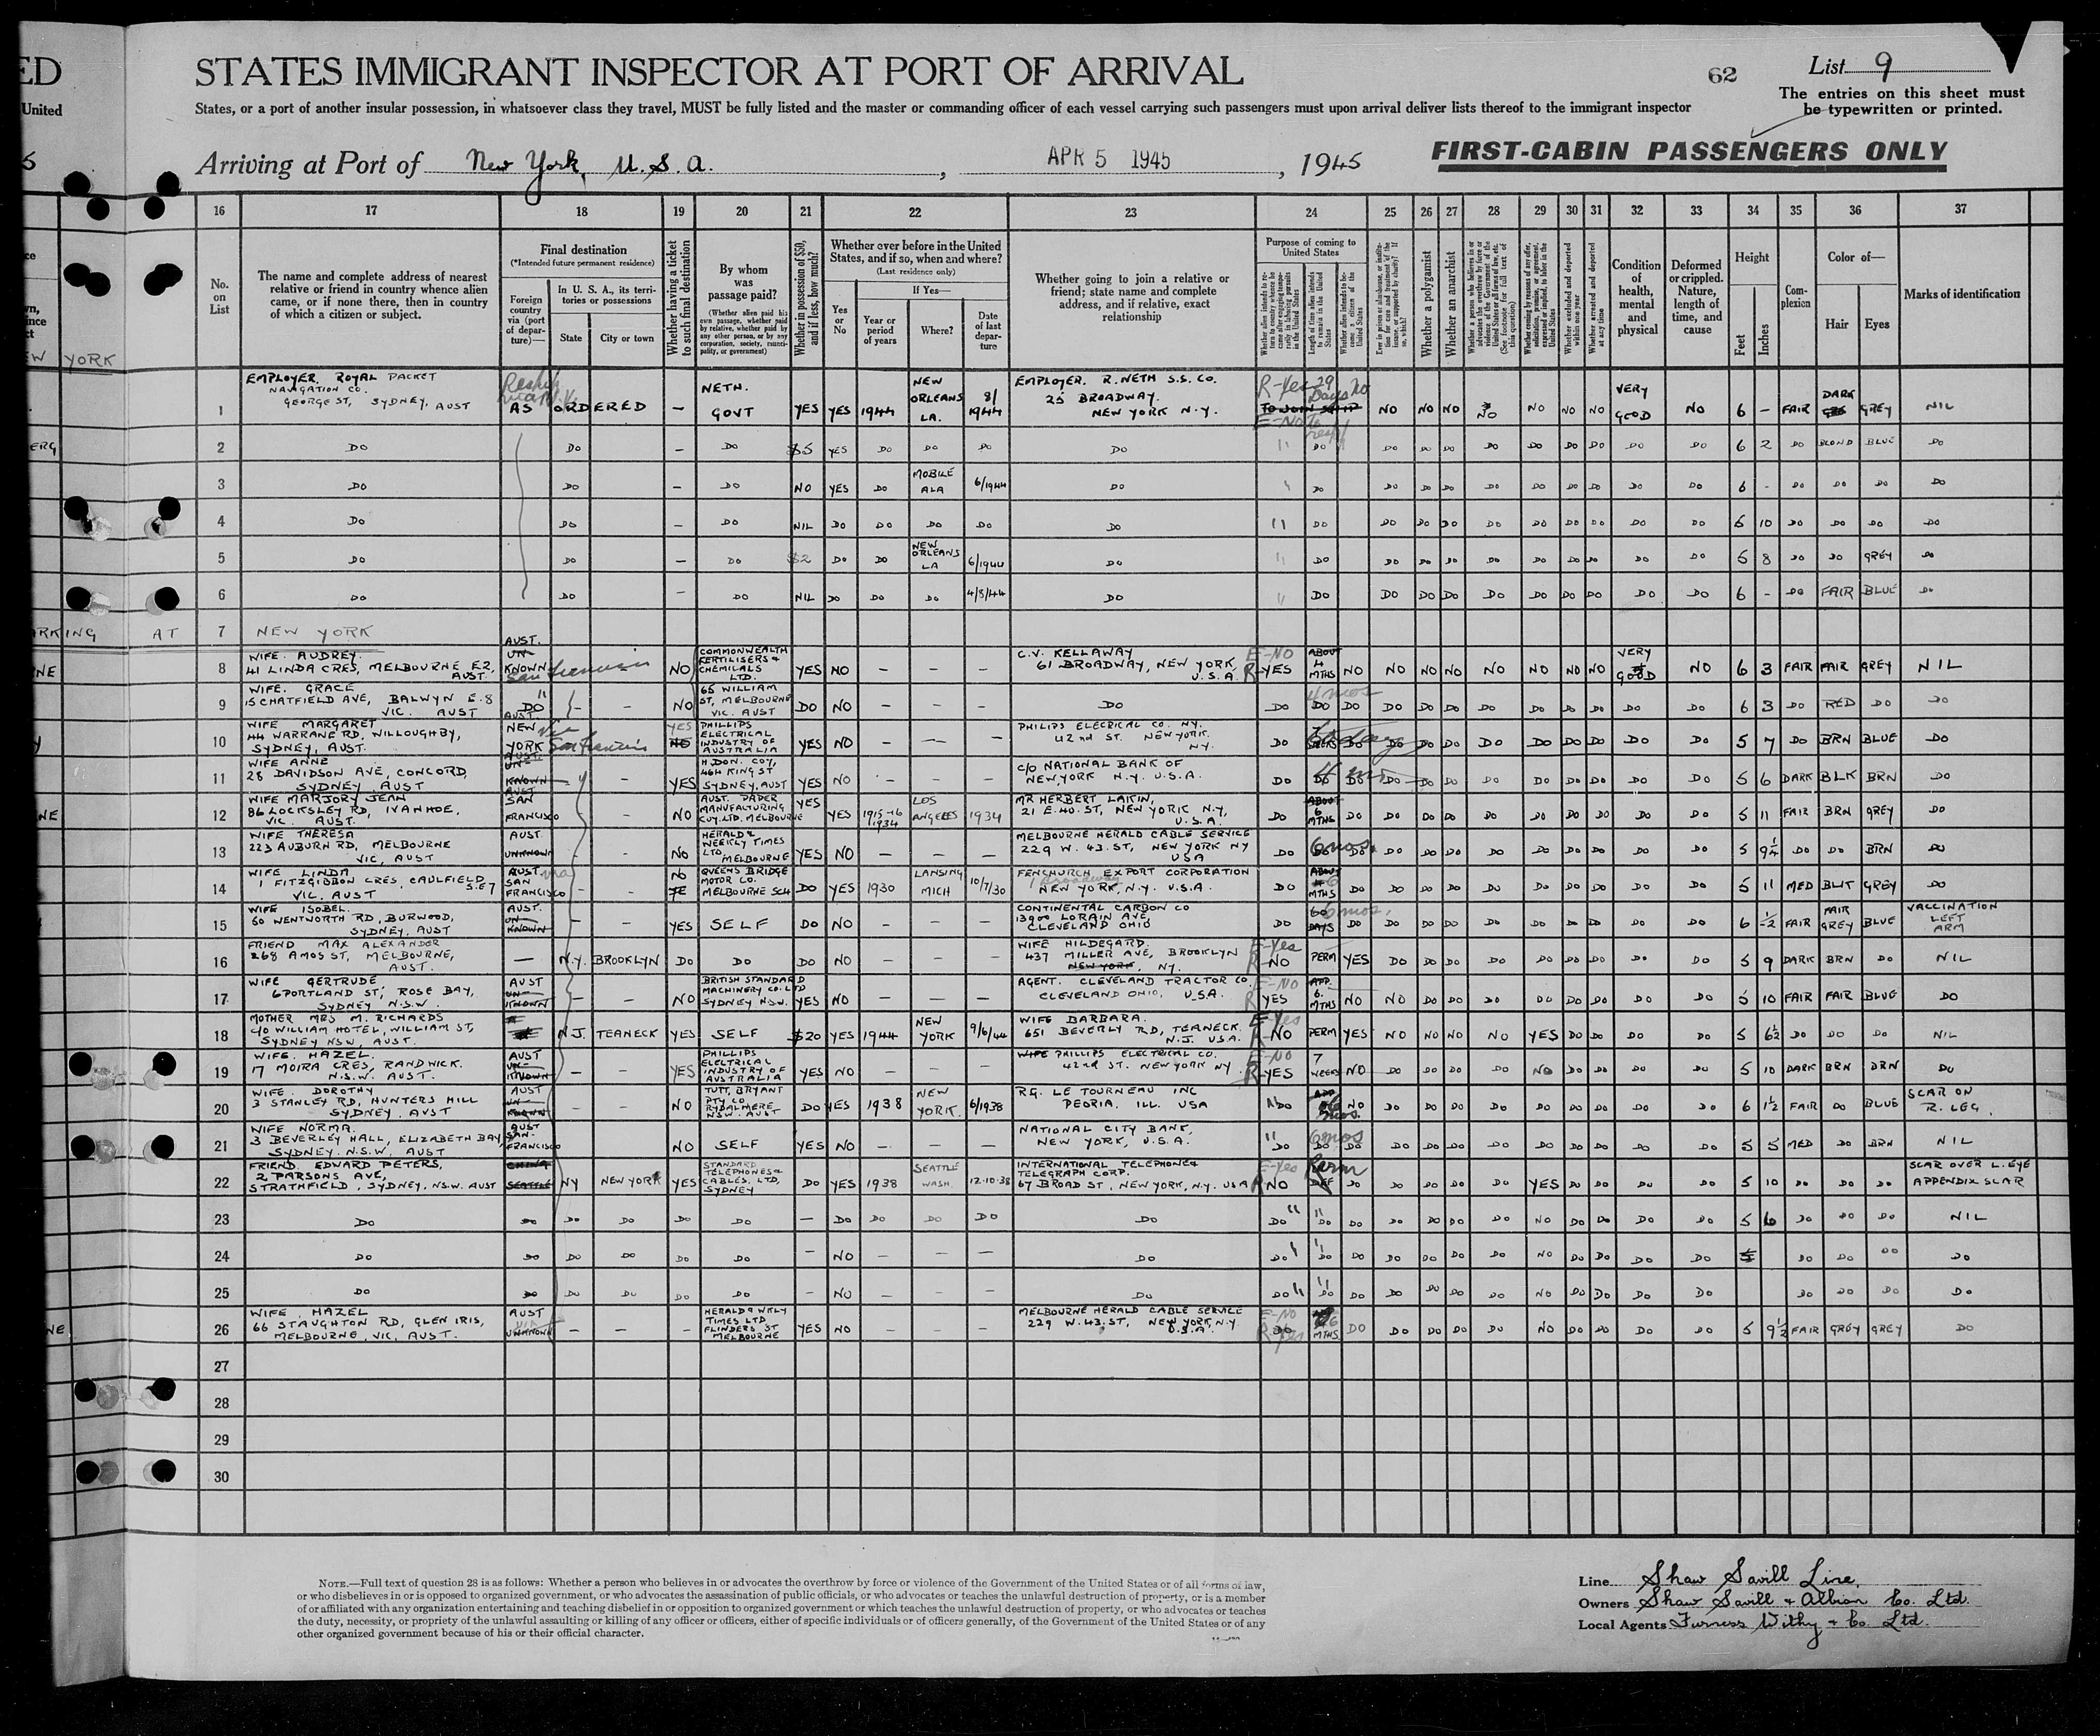 ED
United
5
EW YORK
ERG
ARKING AT
NE
NE
NE
STATES IMMIGRANT INSPECTOR AT PORT OF ARRIVAL
62
List 9
States, or a port of another insular possession, in whatsoever class they travel, MUST be fully listed and the master or commanding officer of each vessel carrying such passengers must upon arrival deliver lists thereof to the immigrant inspector
The entries on this sheet must
be typewritten or printed.
Arriving at Port of New York, U.S.A. , APR 5 1945 , 1945
FIRST-CABIN PASSENGERS ONLY
16 17 18 19 20 21 22 23 24 25 26 27 28 29 30 31 32 33 34 35 36 37
No. on List
The name and complete address of nearest relative or friend in country whence alien came, or if none there, then in country of which a citizen or subject.
Final destination
(*Intended future permanent residence)
Foreign country via (port of departure)—
In U. S. A., its territories or possessions
State
City or town
Whether having a ticket to such final destination
By whom was passage paid?
(Whether alien paid his own passage, whether paid by relative, whether paid by any other person, or by any corporation, society, municipality, or government)
Whether in possession of $50, and if less, how much?
Whether ever before in the United States, and if so, when and where?
(Last residence only)
Yes or No
If Yes—
Year or period of years
Where?
Date of last departure
Whether going to join a relative or friend; state name and complete address, and if relative, exact relationship
Purpose of coming to United States
Whether a polygamist
Whether an anarchist
Whether excluded and deported within one year
Whether arrested and deported at any time
Condition of health, mental and physical
Deformed or crippled. Nature, length of time, and cause
Height
Feet
Inches
Complexion
Color of—
Hair
Eyes
Marks of identification
1 EMPLOYER. ROYAL PACKET NAVIGATION CO. GEORGE ST, SYDNEY, AUST AS ORDERED – NETH. GOVT YES YES 1944 NEW ORLEANS LA. 8/1944 EMPLOYER. R. NETH S.S. CO. 25 BROADWAY. NEW YORK N.Y. R-Yes 29 Days No TO JOIN SHIP NO NO NO NO NO NO NO VERY GOOD NO 6 – FAIR DARK GREY NIL
2 DO DO – DO $5 YES DO DO DO DO " DO DO DO DO DO DO DO DO DO DO 6 2 DO BLOND BLUE DO
3 DO DO – DO NO YES DO MOBILE ALA 6/1944 DO " DO DO DO DO DO DO DO DO DO DO 6 - DO DO DO DO
4 DO DO – DO NIL DO DO DO DO DO " DO DO DO DO DO DO DO DO DO DO 5 10 DO DO DO DO
5 DO DO – DO $2 DO DO NEW ORLEANS LA 6/1944 DO " DO DO DO DO DO DO DO DO DO DO 5 8 DO DO GREY DO
6 DO DO – DO NIL DO DO DO 4/8/44 DO " DO DO DO DO DO DO DO DO DO DO 6 - DO FAIR BLUE DO
7 NEW YORK
8 WIFE. AUDREY. 41 LINDA CRES, MELBOURNE E2, AUST AUST. UNKNOWN San Francisco NO COMMONWEALTH FERTILISERS & CHEMICALS LTD. YES NO – – – C.V. KELLAWAY 61 BROADWAY, NEW YORK, U.S.A. E-NO R-YES ABOUT 4 MTHS NO NO NO NO NO NO NO NO VERY GOOD NO 6 3 FAIR FAIR GREY NIL
9 WIFE. GRACE 15 CHATFIELD AVE, BALWYN E.8 VIC. AUST " DO – – NO 65 WILLIAM ST, MELBOURNE VIC. AUST DO NO – – – DO DO 4 mos DO DO DO DO DO DO DO DO DO DO DO 6 3 DO RED DO DO
10 WIFE MARGARET 44 WARRANE RD, WILLOUGHBY, SYDNEY, AUST. AUST. NEW YORK via San Francisco YES NO PHILLIPS ELECTRICAL INDUSTRY OF AUSTRALIA YES NO – – – PHILIPS ELECRICAL CO. NY. 42nd ST. NEW YORK. NY. DO DO DO DO DO DO DO DO DO DO DO 5 7 DO BRN BLUE DO
11 WIFE ANNE 28 DAVIDSON AVE, CONCORD, SYDNEY AUST AUST. UNKNOWN – YES H. DON. COY, 464 KING ST SYDNEY, AUST YES NO – – – C/O NATIONAL BANK OF NEW YORK N.Y. U.S.A. DO DO DO DO DO DO DO DO DO DO DO DO 5 6 DARK BLK BRN DO
12 WIFE MARJORY JEAN 86 LOCKSLEY RD, IVANHOE, VIC. AUST. AUST SAN FRANCISCO – NO AUST. PAPER MANUFACTURING COY. LTD. MELBOURNE YES YES 1915-16 1934 LOS ANGELES 1934 MR HERBERT LAKIN, 21 E. 40. ST, NEW YORK N.Y, U.S.A. DO ABOUT 6 MTHS DO DO DO DO DO DO DO DO DO DO 5 11 FAIR BRN GREY DO
13 WIFE THERESA 223 AUBURN RD, MELBOURNE VIC, AUST AUST. UNKNOWN – NO HERALD & WEEKLY TIMES LTD, MELBOURNE YES NO – – – MELBOURNE HERALD CABLE SERVICE 229 W. 43. ST, NEW YORK NY USA DO 6 mos. DO DO DO DO DO DO DO DO DO DO 5 9¼ DO DO BRN DO
14 WIFE LINDA 1 FITZGIBBON CRES, CAULFIELD S.E7 VIC. AUST AUST via SAN FRANCISCO – – NO QUEENS BRIDGE MOTOR CO. MELBOURNE DO YES 1930 LANSING MICH 10/7/30 FENCHURCH EXPORT CORPORATION 1 Broadway NEW YORK, N.Y. U.S.A. DO ABOUT 6 MTHS DO DO DO DO DO DO DO DO DO DO 5 11 MED GREY DO
15 WIFE ISOBEL. 60 WENTWORTH RD, BURWOOD, SYDNEY, AUST AUST. UNKNOWN – YES SELF DO NO – – – CONTINENTAL CARBON CO 13900 LORAIN AVE, CLEVELAND OHIO DO 60 DAYS 6 mos. DO DO DO DO DO DO DO DO DO DO 6 -½ FAIR FAIR GREY BLUE VACCINATION LEFT ARM
16 FRIEND MAX ALEXANDER 268 AMOS ST, MELBOURNE, AUST. – N.Y. BROOKLYN DO DO DO NO – – – WIFE HILDEGARD. 437 MILLER AVE, BROOKLYN NEW YORK, NY. E-Yes R-NO PERM YES DO DO DO DO DO DO DO DO DO 5 9 DARK BRN DO NIL
17 WIFE GERTRUDE 6 PORTLAND ST, ROSE BAY, SYDNEY N.S.W. AUST UNKNOWN – – NO BRITISH STANDARD MACHINERY CO. LTD SYDNEY NSW. YES NO – – – AGENT. CLEVELAND TRACTOR CO. CLEVELAND OHIO, U.S.A. E-NO R YES APP. 6. MTHS NO NO DO DO DO DO DO DO DO DO 5 10 FAIR FAIR BLUE DO
18 MOTHER MRS M. RICHARDS 40 WILLIAM HOTEL, WILLIAM ST, SYDNEY NSW, AUST. N.J. TEANECK YES SELF $20 YES 1944 NEW YORK 9/6/44 WIFE BARBARA. 651 BEVERLY RD, TEANECK. N.J. U.S.A. E-Yes R-NO PERM YES NO NO NO NO YES DO DO DO DO 5 6½ DO DO DO NIL
19 WIFE. HAZEL. 17 MOIRA CRES, RANDWICK. N.S.W. AUST. AUST UNKNOWN – – YES PHILLIPS ELECTRICAL INDUSTRY OF AUSTRALIA YES NO – – – WIFE PHILLIPS ELECTRICAL CO. 42nd ST. NEW YORK NY E-NO R-YES 7 WEEKS NO DO DO DO DO NO DO DO DO DO 5 10 DARK BRN BRN DO
20 WIFE. DOROTHY 3 STANLEY RD, HUNTERS HILL SYDNEY. AUST AUST UNKNOWN – – NO TUTT, BRYANT PTY CO. RYDALMERE NSW. AUST DO YES 1938 NEW YORK. 6/1938 R.G. LE TOURNEAU INC PEORIA. ILL. USA " DO NO DO DO DO DO DO DO DO DO DO 6 1½ FAIR DO BLUE SCAR ON R. LEG.
21 WIFE NORMA. 3 BEVERLEY HALL, ELIZABETH BAY, SYDNEY. N.S.W, AUST AUST SAN. FRANCISCO NO SELF YES NO – – – NATIONAL CITY BANK, NEW YORK, U.S.A. " DO 6 mos DO DO DO DO DO DO DO DO DO DO DO 5 5 MED DO BRN NIL
22 FRIEND. EDWARD PETERS, 2 PARSONS AVE, STRATHFIELD, SYDNEY, NSW. AUST CHINA SEATTLE NY NEW YORK YES STANDARD TELEPHONES & CABLES, LTD, SYDNEY DO YES 1938 SEATTLE WASH. 12-10-38 INTERNATIONAL TELEPHONE & TELEGRAPH CORP. 67 BROAD ST, NEW YORK, N.Y. USA E-Yes R NO Perm DO DO DO DO DO YES DO DO DO DO 5 10 DO DO DO SCAR OVER L. EYE APPENDIX SCAR
23 DO DO DO DO DO DO – DO DO DO DO DO DO " " DO DO DO DO DO DO NO DO DO DO DO 5 6 DO DO DO NIL
24 DO DO DO DO DO DO – NO – – – DO DO " " DO DO DO DO DO DO NO DO DO DO DO DO DO DO DO
25 DO DO DO DO DO DO – NO – – – DO DO " " DO DO DO DO DO DO NO DO DO DO DO DO DO DO DO
26 WIFE. HAZEL 66 STAUGHTON RD, GLEN IRIS, MELBOURNE, VIC, AUST. AUST UNKNOWN – – – HERALD & WKLY TIMES LTD FLINDERS ST MELBOURNE YES NO – – – MELBOURNE HERALD CABLE SERVICE 229 W. 43. ST, NEW YORK, N.Y. U.S.A. E-NO DO R-Yes 6 MTHS. DO DO DO DO DO NO DO DO DO DO 5 9½ FAIR GREY GREY DO
27
28
29
30
NOTE.—Full text of question 28 is as follows: Whether a person who believes in or advocates the overthrow by force or violence of the Government of the United States or of all forms of law,
or who disbelieves in or is opposed to organized government, or who advocates the assassination of public officials, or who advocates or teaches the unlawful destruction of property, or is a member
of or affiliated with any organization entertaining and teaching disbelief in or opposition to organized government or which teaches the unlawful destruction of property, or who advocates or teaches
the duty, necessity, or propriety of the unlawful assaulting or killing of any officer or officers, either of specific individuals or of officers generally, of the Government of the United States or of any
other organized government because of his or their official character.
Line Shaw Savill Line.
Owners Shaw Savill & Albion Co. Ltd.
Local Agents Furness Withy & Co. Ltd.